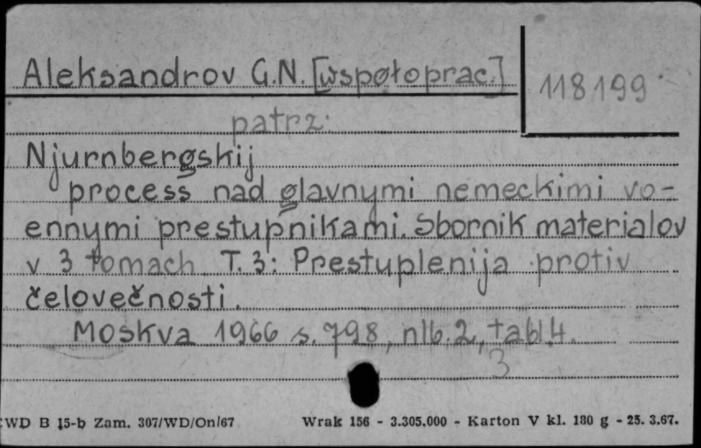 Aleksandrov G.N. [współoprac.]
118199
patrz:
Njurnbergskij
process nad glavnymi nemeckimi vo-
ennymi prestupnikami. Sbornik materialov
v 3 tomach. T. 3: Prestuplenija protiv
čelovečnosti.
Moskva 1966 s. 798, nlb. 2, tabl. 4.
3
CWD B 15-b Zam. 307/WD/On/67 Wrak 156 - 3.305.000 - Karton V kl. 180 g - 25. 3.67.